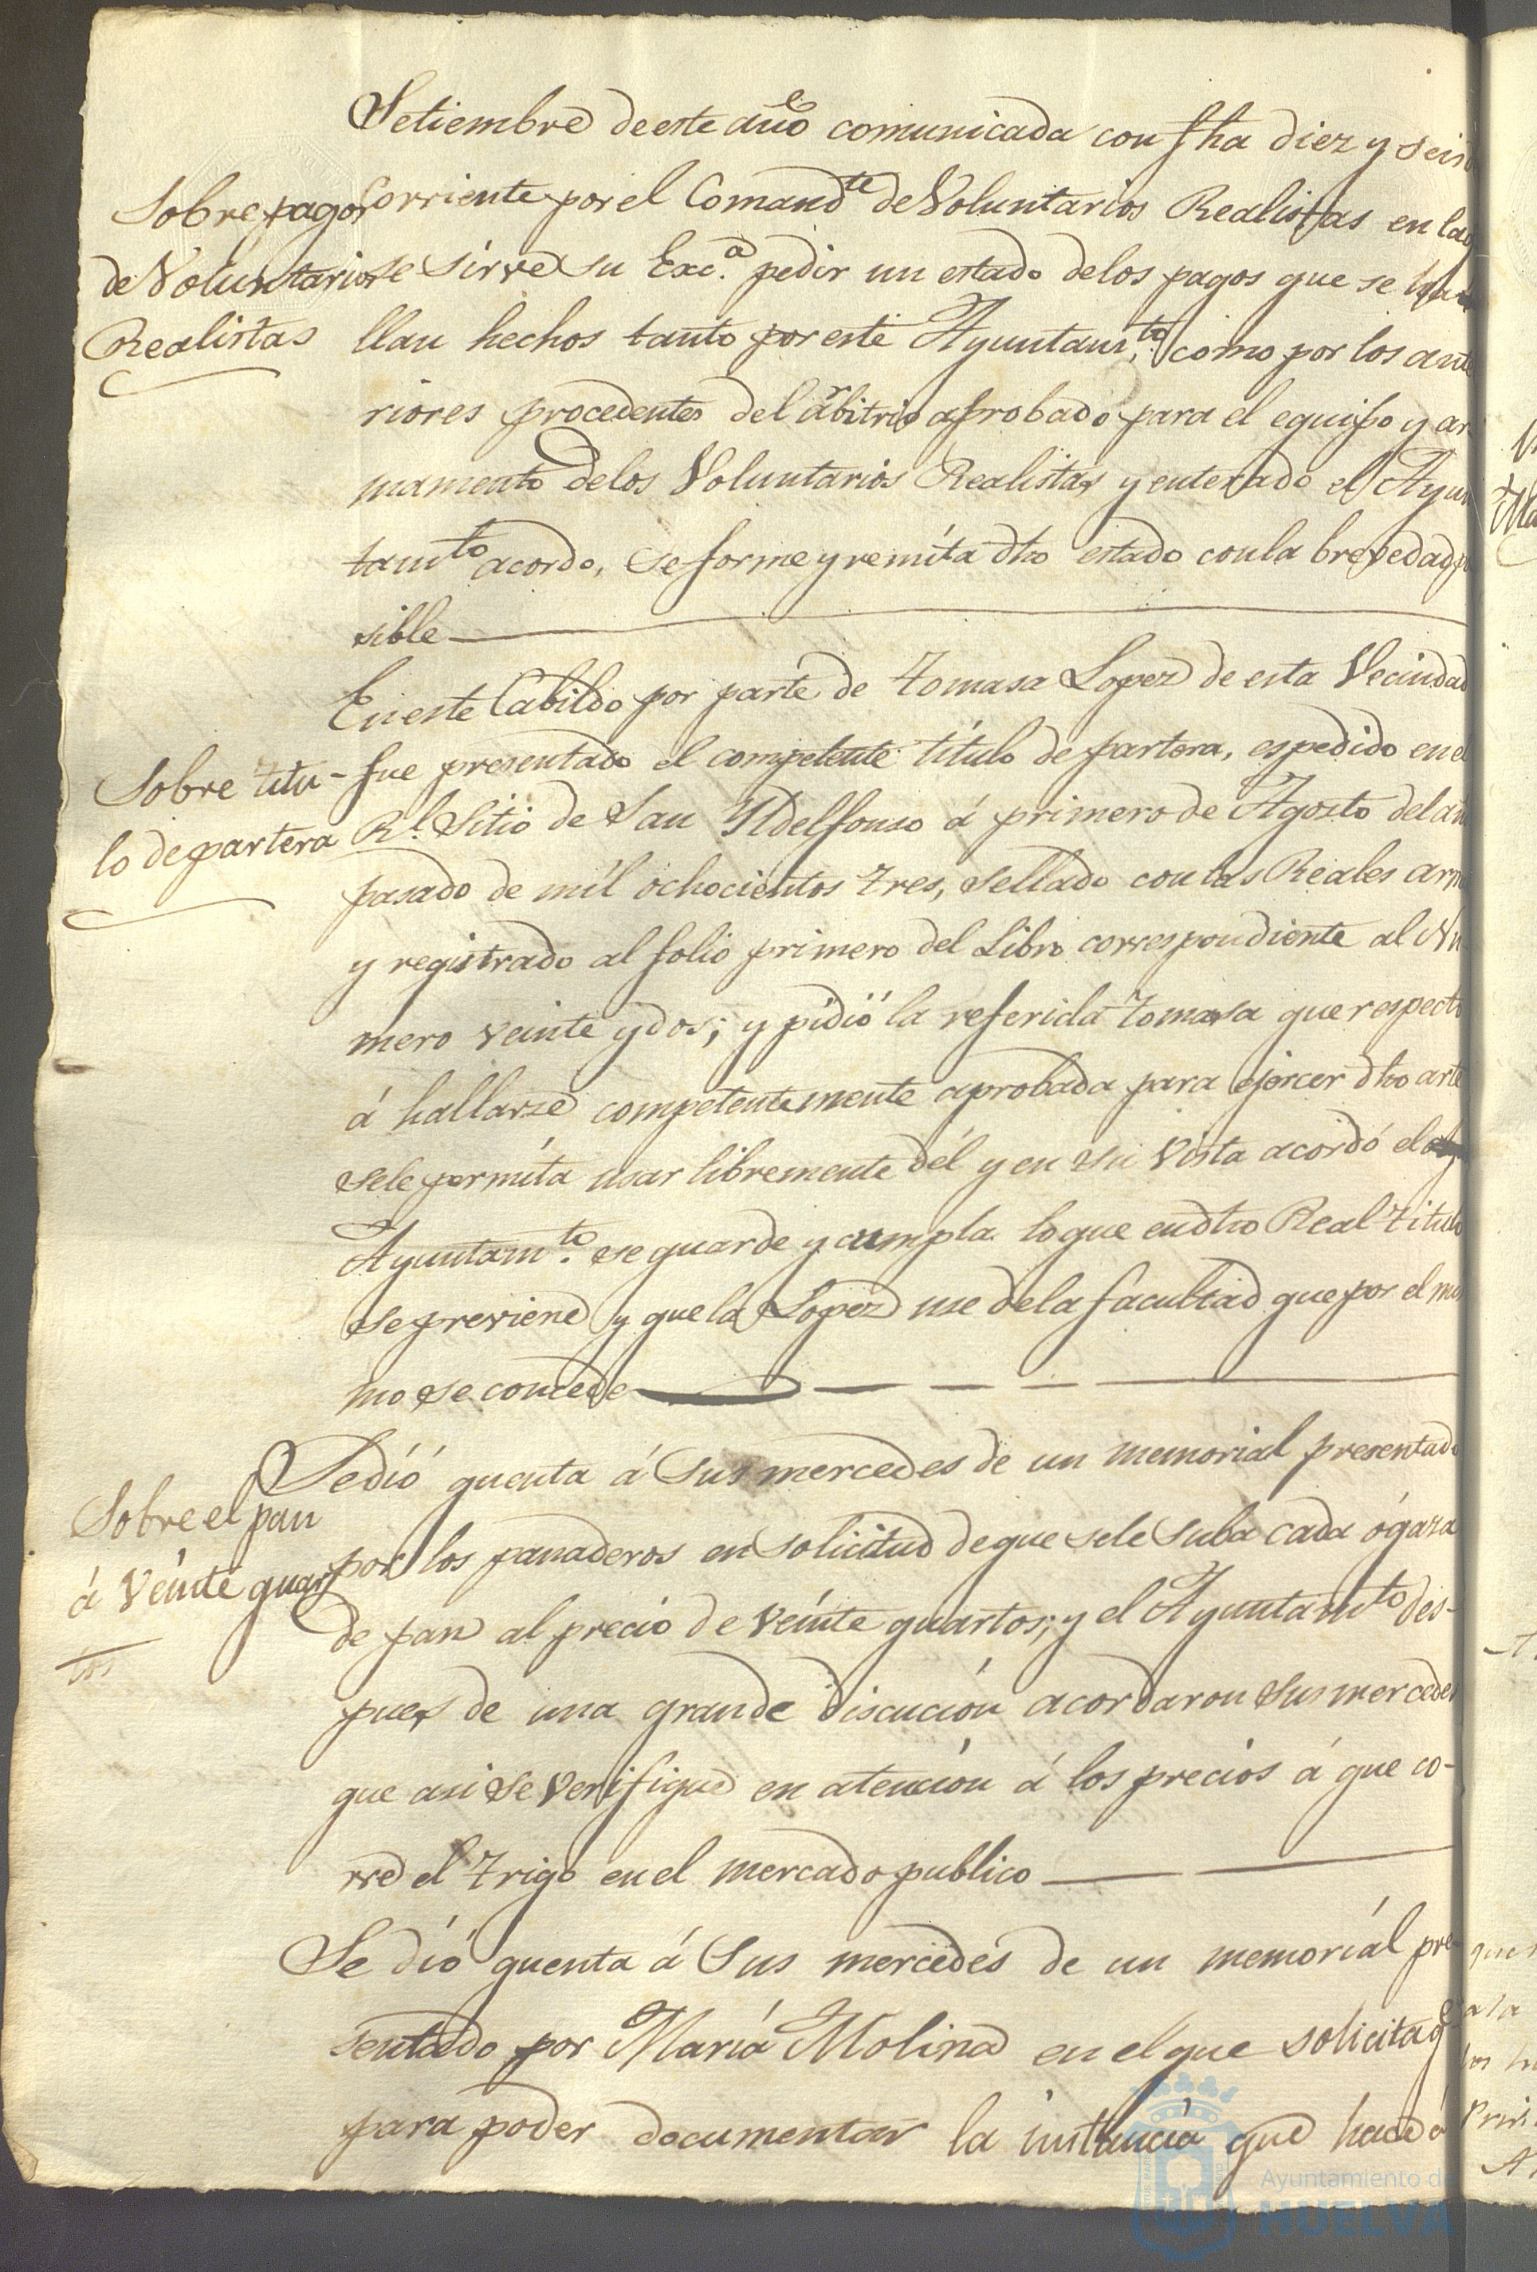 Setiembre de este año comunicada con fha diez y seis
Sobre pagos
de Voluntarios
Realistas
corriente por el Comandte de Voluntarios Realistas en la q
se sirve su Exc.a pedir un estado delos pagos que se ha
llan hechos tanto por este Ayuntam.to como por los ante
riores procedentes del arbitrio aprobado para el equipo y ar
mamento delos Voluntarios Realistas y enterado el Ayun
tamto acordo, se forme y remita dho estado con la brevedad po
sible
En este Cabildo por parte de Tomasa Lopez de esta Vecindad
Sobre titu-
lo de partera
fue presentado el competente titulo de partera, espedido en el
Rl. Sitio de San Yldelfonso á primero de Agosto del an
pasado de mil ochocientos tres, sellado con las Reales arm
y registrado al folio primero del Libro correspondiente al Nu
mero veinte y dos; y pidió la referida Tomasa que respecto
á hallarse competentemente aprobada para ejercer dho arte
sele permita usar libremente dél y en su vista acordó el
Ayuntam.to se guarde y cumpla lo que en dho Real Titulo
se previene y que la Lopez use de la facultad que por el mis
mo se concede
Sobre el pan
á veinte quar
tos
Se dió quenta á Sus mercedes de un memorial presentado
por los panaderos en solicitud de que sele suba cada ógaza
de pan al precio de veinte quartos; y el Ayuntamto des-
pues de una grande discución acordaron sus mercedes
que asi se verifique en atención á los precios á que co-
rre el trigo en el mercado publico
Se dió quenta á Sus mercedes de un memorial pre
sentado por María Molina en el que solicita q
para poder documentar la instancia que hace á
Ayuntamiento de
HUELVA